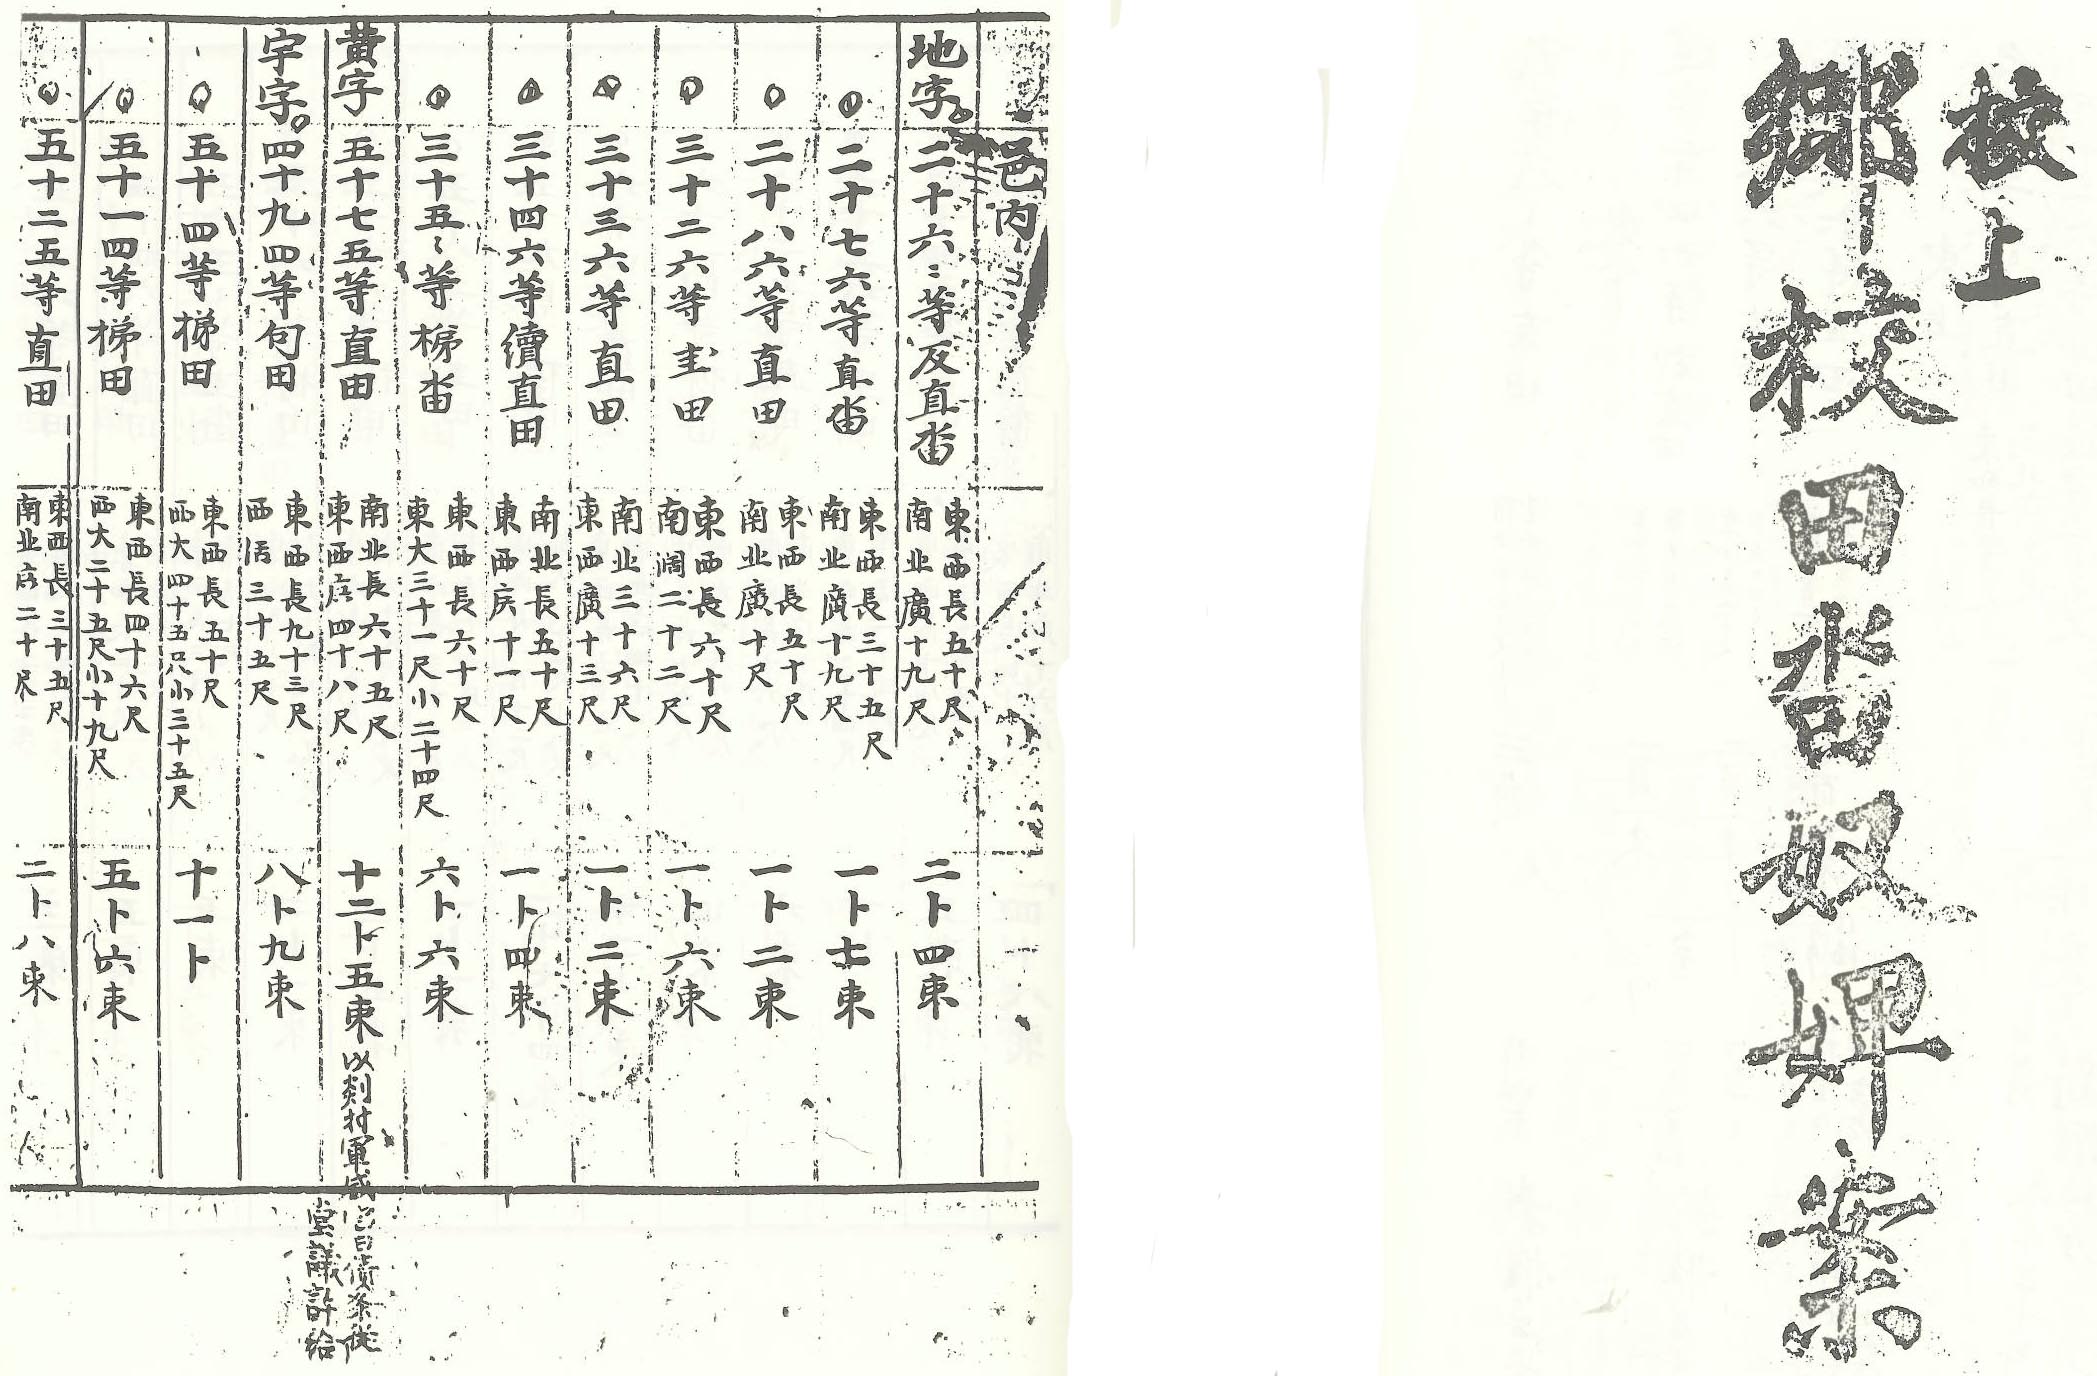 校上
鄕校田畓奴婢案
邑內
地字 二十六ミ等反直畓 東西長五十尺 南北廣十九尺 二卜四束
二十七六等直畓 東西長三十五尺 南北廣十九尺 一卜七束
二十八六等直田 東西長五十尺 南北廣十尺 一卜二束
三十二六等圭田 東西長六十尺 南濶二十二尺 一卜六束
三十三六等直田 南北三十六尺 東西廣十三尺 一卜二束
三十四六等續直田 南北長五十尺 東西広十一尺 一卜四束
三十五ミ等梯畓 東西長六十尺 東大三十一尺小二十四尺 六卜六束
黃字 五十七五等直田 南北長六十五尺 東西広四十八尺 十二卜五束 以剡村軍威宅白債条徙
堂議許給
宇字 四十九四等句田 東西長九十三尺 西活三十五尺 八卜九束
五十四等梯田 東西長五十尺 西大四十五尺小三十五尺 十一卜
五十一四等梯田 東西長四十六尺 西大二十五尺小十九尺 五卜六束
五十二五等直田 東西長三十五尺 南北広二十尺 二卜八束